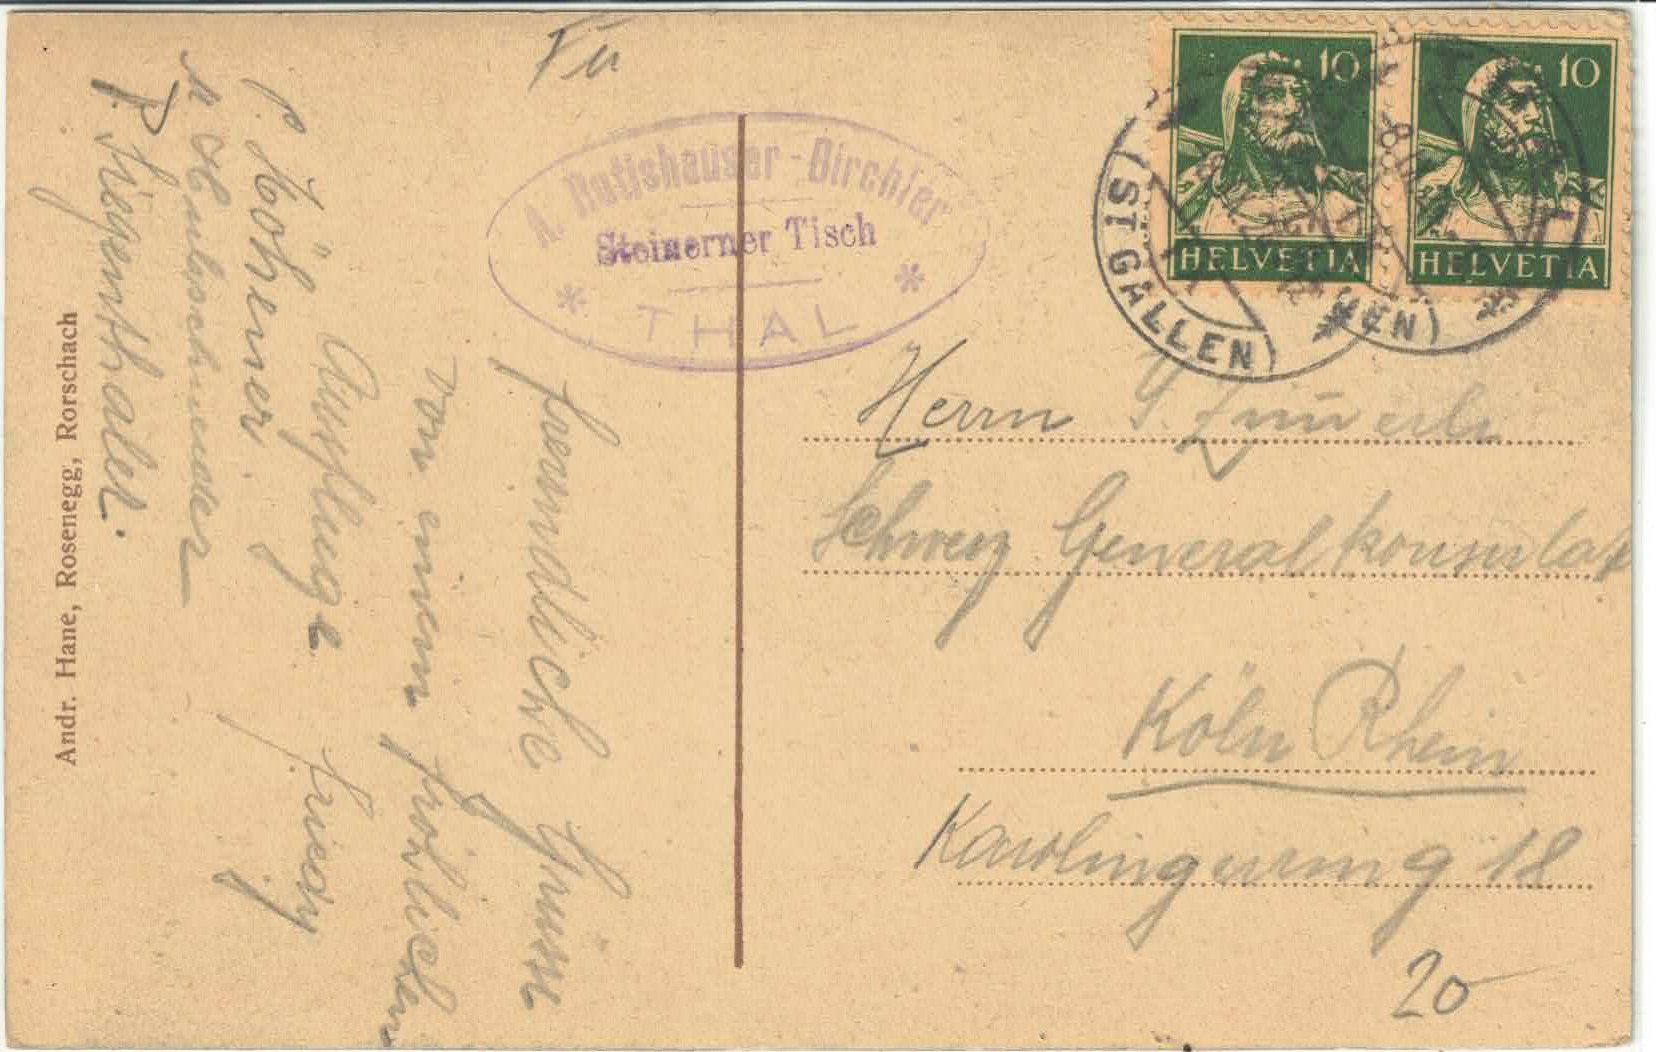 A. Rutishauser-Birchler
Steinerner Tisch
* THAL *
10
HELVETIA
10
HELVETIA
(ST GALLEN)
Herrn
Schweiz Generalkonsulat
Köln Rhein
Karolingerring 18
20
freundliche Grüsse
von einem fröhlichen
Ausfluge
Friedy
P. Höhener
P. Siegenthaler.
Andr. Hane, Rosenegg, Rorschach